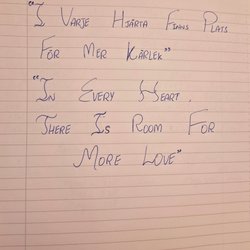 "I Varje Hjärta Finns Plats
För Mer Kärlek"
"In Every Heart,
There Is Room For
More Love"